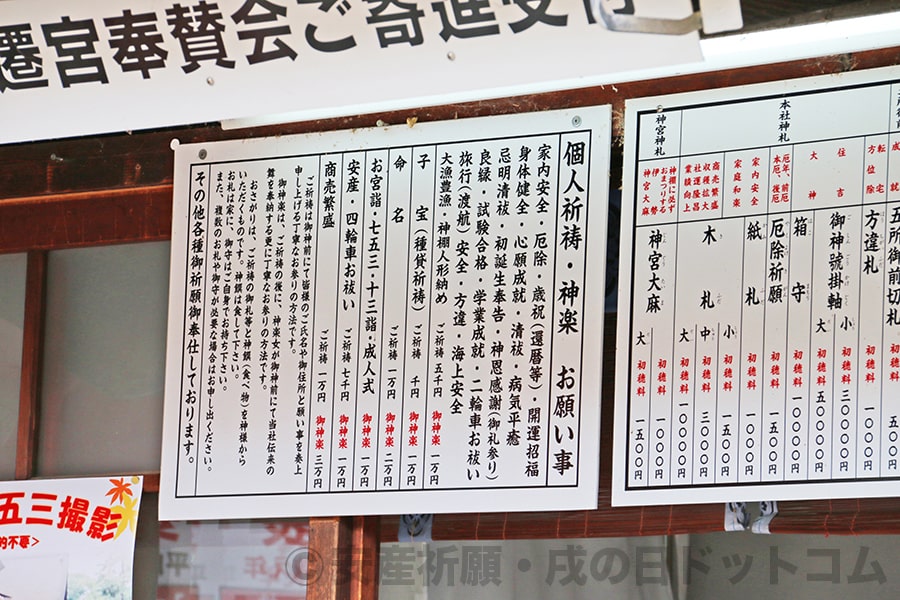 遷宮奉賛会ご寄進受付
個人祈祷・神楽 お願い事
家内安全・厄除・歳祝(還暦等)・開運招福
身体健全・心願成就・清祓・病気平癒
忌明清祓・初誕生奉告・神恩感謝(御礼参り)
良縁・試験合格・学業成就・二輪車お祓い
旅行(渡航)安全・方違・海上安全
大漁豊漁・神棚人形納め ご祈祷 五千円 御神楽 一万円
子宝(種貸祈祷) ご祈祷 千円
命名 ご祈祷 一万円 御神楽 二万円
お宮詣・七五三・十三詣・成人式 御神楽 一万円
安産・四輪車お祓い ご祈祷 七千円 御神楽 一万円
商売繁盛 ご祈祷 一万円 御神楽 三万円
ご祈祷は御神前にて皆様のご氏名や御住所と願い事を奏上
申し上げる丁寧なお参りの方法です。
御神楽は、ご祈祷の後に、神楽女が御神前にて当社伝来の
舞を奉納する更に丁寧なお参りの方法です。
おさがりは、ご祈祷の御札等と神饌(食べ物)を神様から
いただくものです。神饌は食して下さい。
お札は家に、御守はご自身でお持ち下さい。
また、複数のお札や御守が必要な場合はお申し出ください。
その他各種御祈願御奉仕しております。
本社神札
神宮神札
成就 五所御前切札 初穂料 五〇〇円
転宅 方位除 方違札 初穂料 一〇〇〇円
住吉 大神 御神號掛軸 小 初穂料 三〇〇〇円
大 初穂料 五〇〇〇円
箱守 初穂料 一〇〇〇円
厄年、前厄 本厄、後厄 厄除祈願 初穂料 一五〇〇円
家内安全 家庭和楽 紙札 初穂料 一〇〇〇円
商売繁盛 収穫拡大 社運隆昌 業績向上 木札 小 初穂料 一五〇〇円
中 初穂料 三〇〇〇円
大 初穂料
神棚に必ず おまつりする 伊勢 神宮大麻 神宮大麻 大 初穂料
五三撮影
的不要>
©安産祈願・戌の日ドットコム